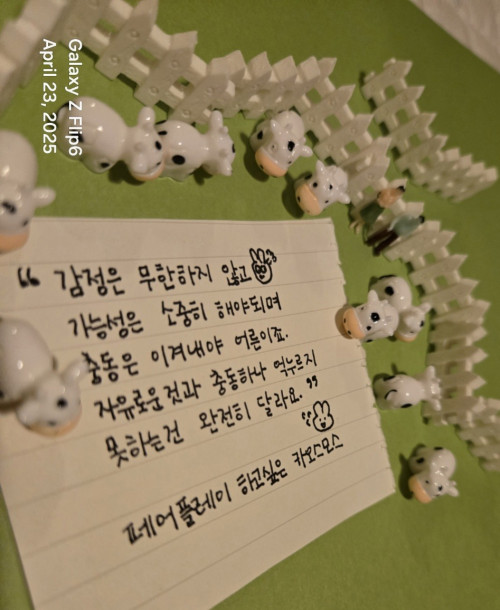 Galaxy Z Flip6
April 23, 2025
“ 감정은 무한하지 않고
가능성은 소중히 해야되며
충동은 이겨내야 어른이죠.
자유로운것과 충동하나 억누르지
못하는건 완전히 달라요. ”
페어플레이 하고싶은 카오스모스